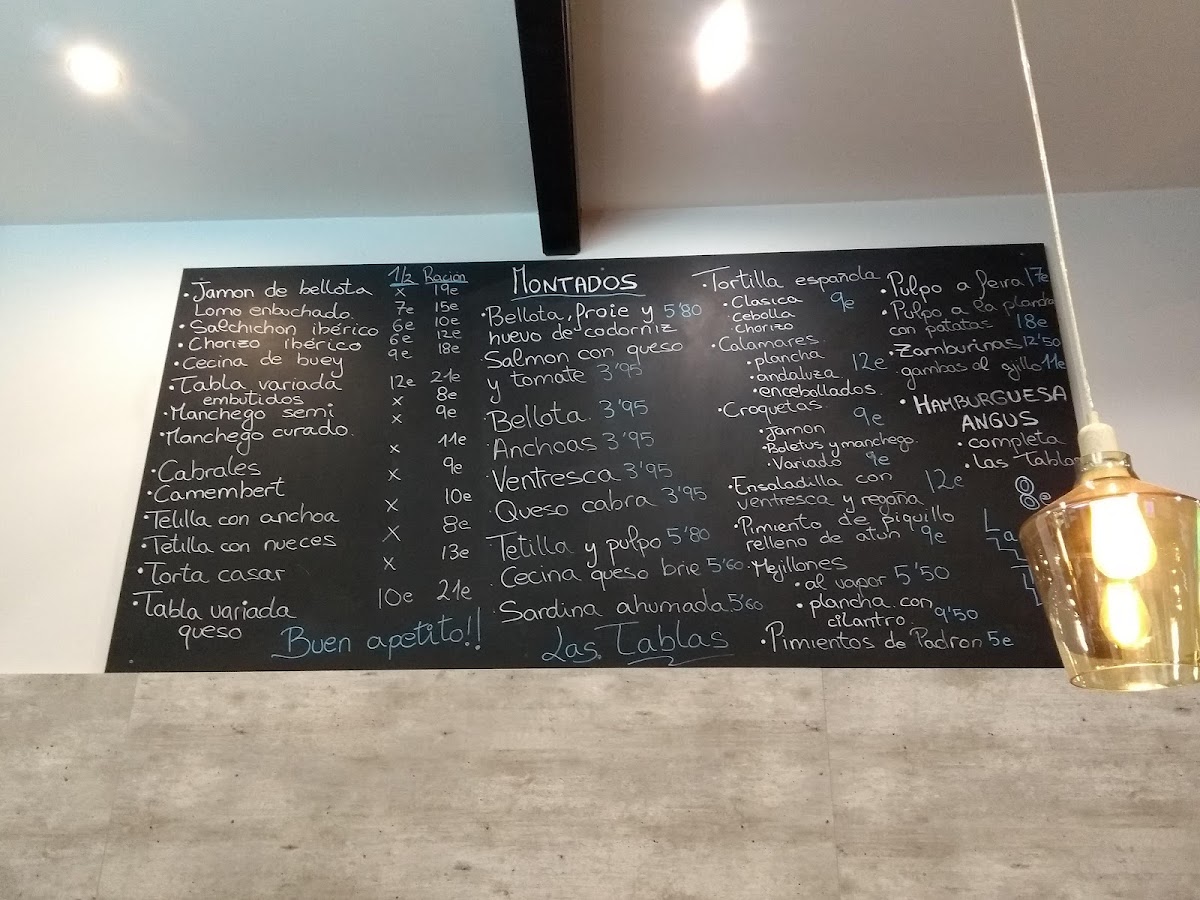 1/2 Ración
• Jamon de bellota x 19e
Lomo enbuchado. 7e 15e
• Salchichon ibérico 6e 10e
• Chorizo Ibérico 6e 12e
• Cecina de buey 9e 18e
• Tabla variada 12e 21e
embutidos
• Manchego semi x 8e
• Manchego curado. x 9e
• Cabrales x 11e
• Camembert x 9e
• Tetilla con anchoa x 10e
• Tetilla con nueces x 8e
• Torta casar x 13e
• Tabla variada 10e 21e
queso
Buen apetito!!
MONTADOS
• Bellota, froie y 5'80
huevo de codorniz
Salmon con queso
y tomate 3'95
Bellota 3'95
Anchoas 3'95
Ventresca 3'95
Queso cabra 3'95
Tetilla y pulpo 5'80
Cecina queso brie 5'60
Sardina ahumada 5'60
Las Tablas
• Tortilla española
• Clasica 9e
Cebolla
Chorizo
• Calamares
• plancha
• andaluza 12e
• encebollados
• Croquetas
• Jamon 9e
• Boletus y manchego.
• Variado 9e
• Ensaladilla con 12e
ventresca y regaña
• Pimiento de piquillo
relleno de atun 9e
• Mejillones
• al vapor 5'50
• plancha con
cilantro 9'50
• Pimientos de Padron 5e
• Pulpo a feira 17e
• Pulpo a la plancha
con patatas 18e
• Zamburinas 12'50
gambas al ajillo 11e
• HAMBURGUESA
ANGUS
• completa
• Las Tablas
8e